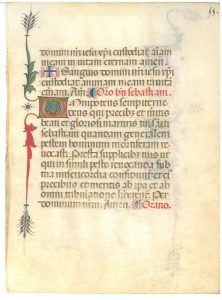 68.
domini nri iesu xpi custodiat aiam
meam in vitam eternam amen
Sanguis domini nri iesu xpi
custodiat animam meam in vita
eternam. Am. Oro bti sebastiani.
Omnipotens sempiterne
deus qui precibus et meritis
beati et gloriosi martiris tui sacti
sebastiani quandam generalem
pestem hominibus mortiferam re
vocasti. Presta supplicibus tuis ut
qui
misericordia confidentes
precibus et meritis ab ipa et ab
omni tribulatione liberet. Per
dominum Amen. Oratio.